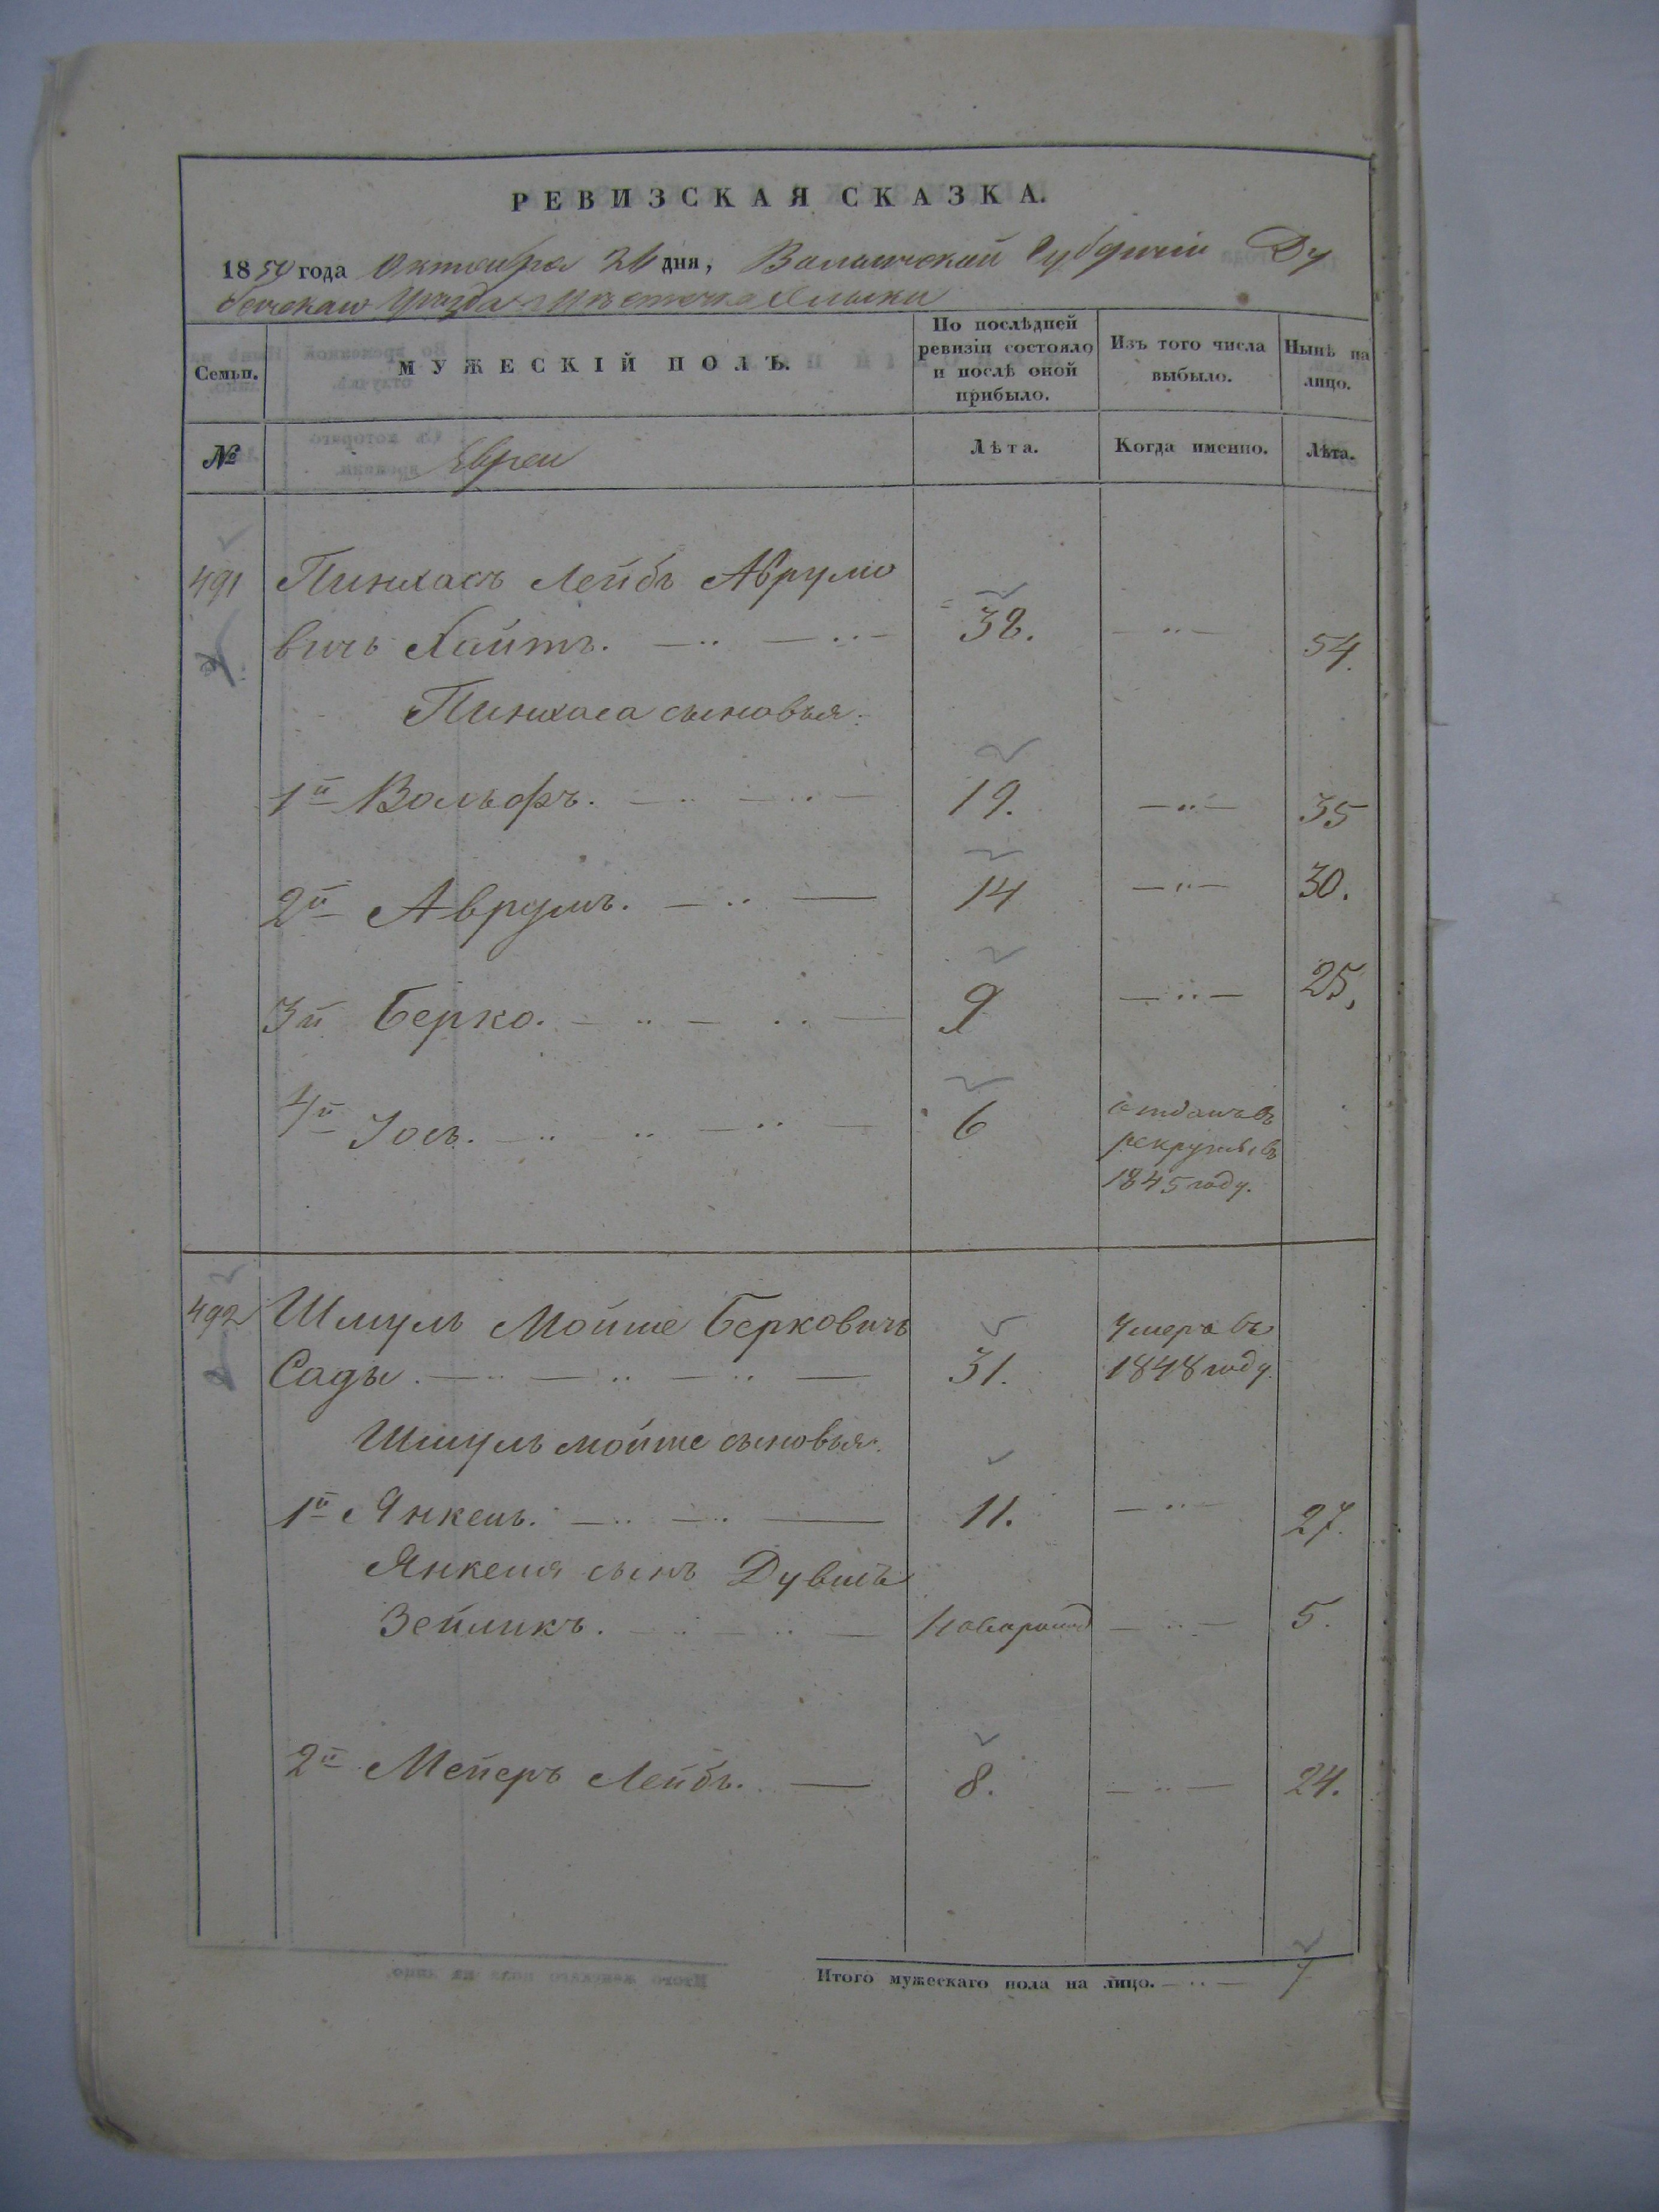 РЕВИЗСКАЯ СКАЗКА.
1854 года Октября 26 дня, Волынской Губерніи Ду
бенскаго Уезда Мѣстечка Олыки
Семьи.
МУЖЕСКІЙ ПОЛЪ.
По послѣдней ревизіи состояло и послѣ оной прибыло.
Изъ того числа выбыло.
Нынѣ на лицо.
№
Евреи
Лѣта.
Когда именно.
Лѣта.
491 Пинхасъ Лейбъ Аврумо
вичь Хайтъ. 38. 54.
Пинхаса сыновья:
1й Вольфъ. 19. 35
2й Аврумъ. 14 30.
3й Берко. 9 25.
4й Іось. 6 отданъ въ
рекруты въ
1845 году.
492 Шмуль Мойше Берковичь Умеръ въ
Сады. 31. 1848 году.
Шмуль Мойше сыновья:
1й Янкель. 11. 27.
Янкеля сынъ Дувидъ
Зейликъ. новорожд 5.
2й Мейеръ Лейбъ. 8. 24.
Итого мужескаго пола на лицо. 7